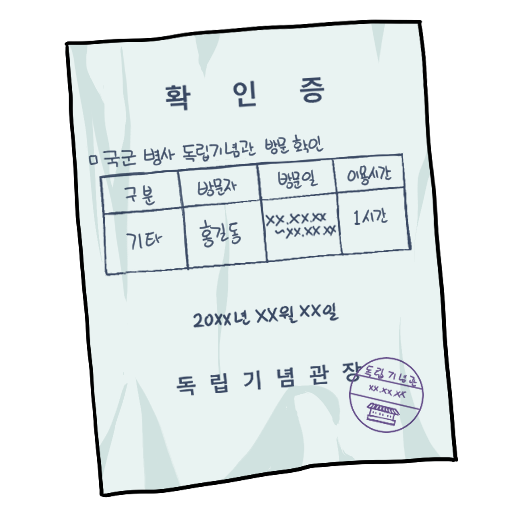 확 인 증
□ 국군 병사 독립기념관 방문 확인
구분 방문자 방문일 이용시간
기타 홍길동 XX.XX.XX ~XX.XX.XX 1시간
20XX년 XX월 XX일
독 립 기 념 관 장
독립기념관
XX.XX.XX